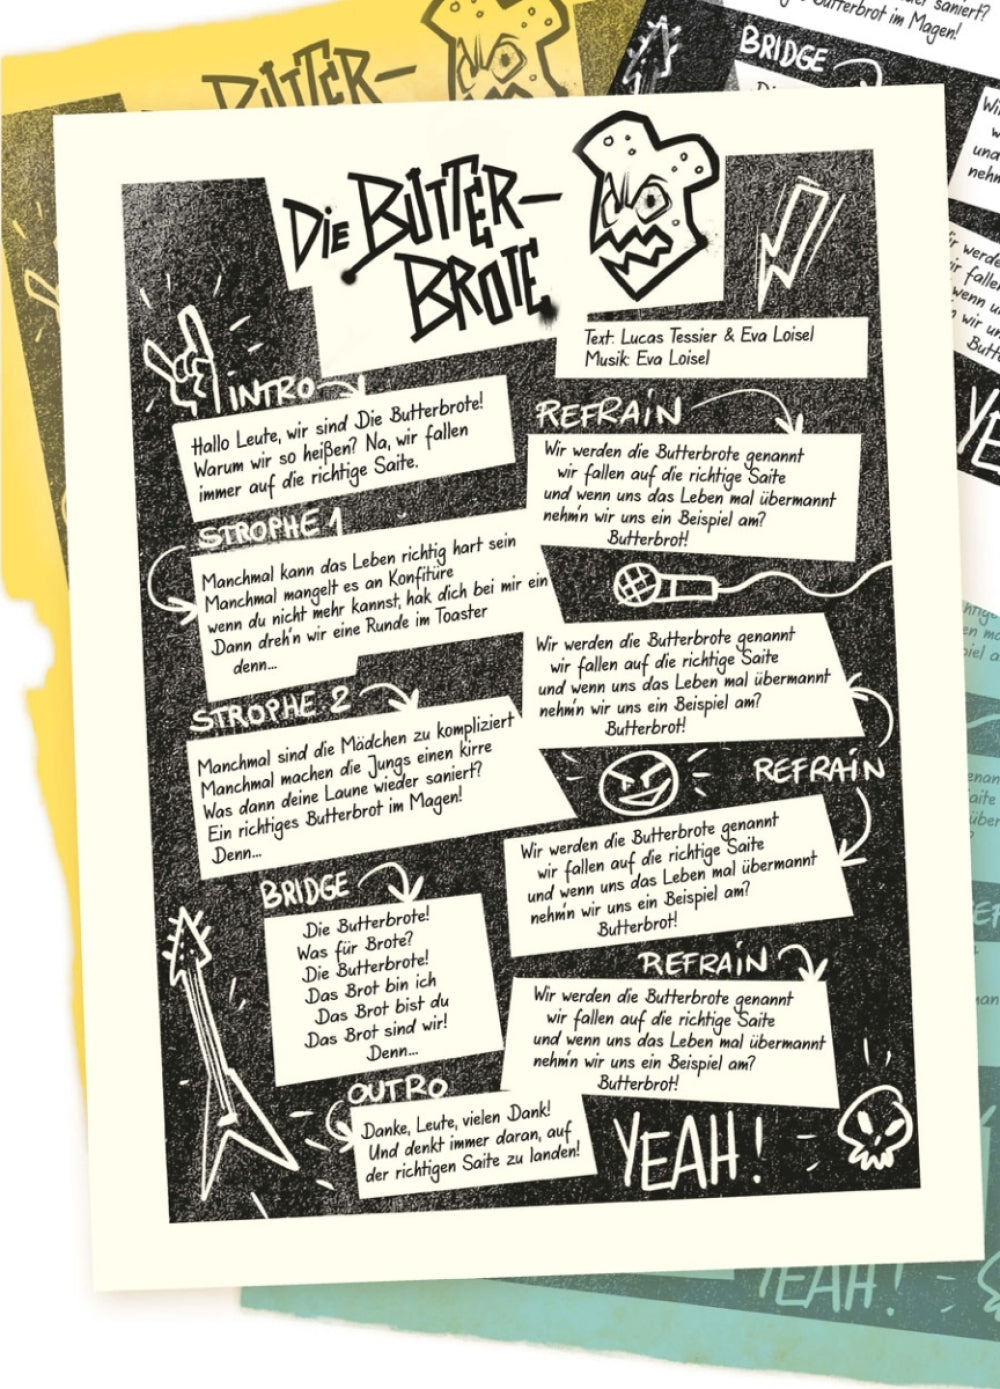 Die Butter-
Brote
Text: Lucas Tessier & Eva Loisel
Musik: Eva Loisel
INTRO
Hallo Leute, wir sind Die Butterbrote!
Warum wir so heißen? Na, wir fallen
immer auf die richtige Saite.
STROPHE 1
Manchmal kann das Leben richtig hart sein
Manchmal mangelt es an Konfitüre
wenn du nicht mehr kannst, hak dich bei mir ein
Dann dreh'n wir eine Runde im Toaster
denn...
STROPHE 2
Manchmal sind die Mädchen zu kompliziert
Manchmal machen die Jungs einen kirre
Was dann deine Laune wieder saniert?
Ein richtiges Butterbrot im Magen!
Denn...
BRIDGE
Die Butterbrote!
Was für Brote?
Die Butterbrote!
Das Brot bin ich
Das Brot bist du
Das Brot sind wir!
Denn...
OUTRO
Danke, Leute, vielen Dank!
Und denkt immer daran, auf
der richtigen Saite zu landen!
REFRAIN
Wir werden die Butterbrote genannt
wir fallen auf die richtige Saite
und wenn uns das Leben mal übermannt
nehm'n wir uns ein Beispiel am?
Butterbrot!
Wir werden die Butterbrote genannt
wir fallen auf die richtige Saite
und wenn uns das Leben mal übermannt
nehm'n wir uns ein Beispiel am?
Butterbrot!
REFRAIN
Wir werden die Butterbrote genannt
wir fallen auf die richtige Saite
und wenn uns das Leben mal übermannt
nehm'n wir uns ein Beispiel am?
Butterbrot!
REFRAIN
Wir werden die Butterbrote genannt
wir fallen auf die richtige Saite
und wenn uns das Leben mal übermannt
nehm'n wir uns ein Beispiel am?
Butterbrot!
YEAH!
BUTTER-
saniert?
Butterbrot im Magen!
BRIDGE
YEAH!